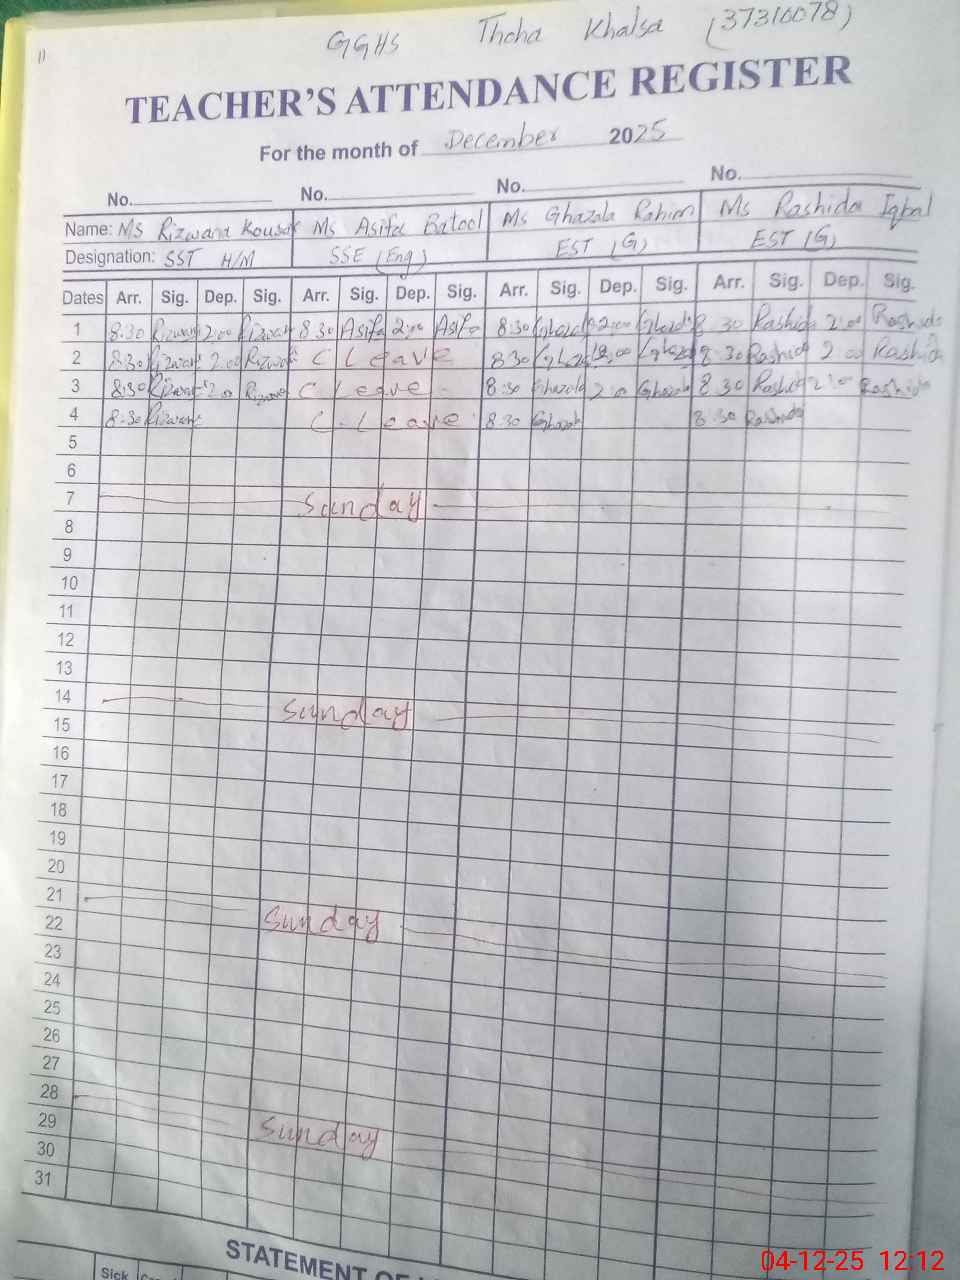 11
GGHS Thoha Khalsa (37310078)
TEACHER'S ATTENDANCE REGISTER
For the month of December 2025
No. No. No. No.
Name: Ms Rizwana Kousar Ms Asifa Batool Ms Ghazala Rahim Ms Rashida Iqbal
Designation: SST H/M SSE (Eng) EST (G) EST (G)
Dates Arr. Sig. Dep. Sig. Arr. Sig. Dep. Sig. Arr. Sig. Dep. Sig. Arr. Sig. Dep. Sig.
1 8:30 Rizwan 2:00 Rizwan 8:30 Asifa 2:00 Asifa 8:30 Ghazala 2:00 Ghazala 8 30 Rashida 2:00 Rashida
2 8:30 Rizwan 2:00 Rizwan C Leave 8:30 8 30 Rashid 2 00 Rashida
3 8:30 Rizwan 2:0 Rizwan C Leave 8:30 Ghazala 2:0 Ghazala 8 30 Rashid 2:0 Rashida
4 8:30 Rizwan C. Leave 8:30 Ghazala 8:30 Rashida
5
6
7 Sunday
8
9
10
11
12
13
14 Sunday
15
16
17
18
19
20
21 Sunday
22
23
24
25
26
27
28 Sunday
29
30
31
STATEMENT OF
Sick
04-12-25 12:12